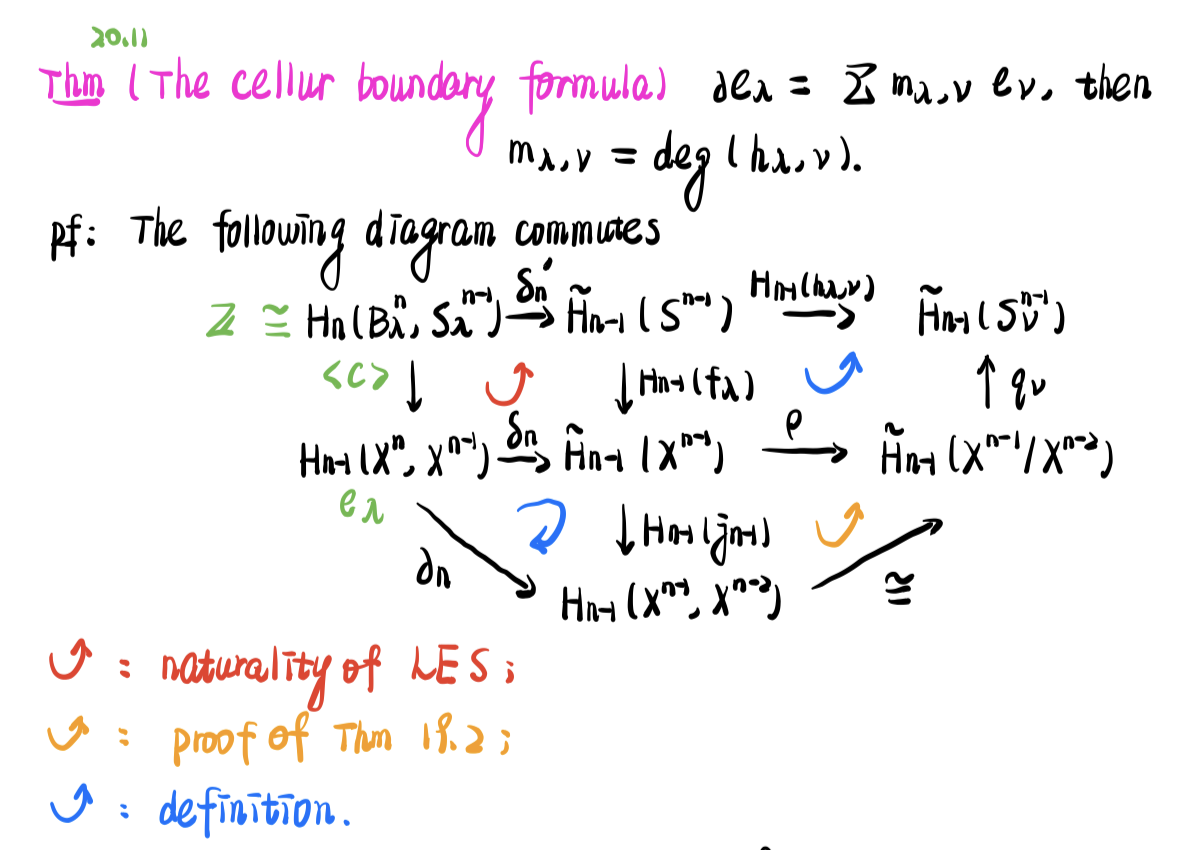 20.11
Thm (The cellur boundary formula) ∂eλ = Σ mλ,ν eν, then
mλ,ν = deg(hλ,ν).
pf: The following diagram commutes
ℤ ≅ Hn(Bλⁿ, Sλⁿ⁻¹) →δn′ H̃n-1(Sⁿ⁻¹) →Hn-1(hλ,ν) H̃n-1(Sνⁿ⁻¹)
<c> ↓ ↓Hn-1(fλ) ↑qν
Hn-1(Xⁿ, Xⁿ⁻¹) →δn H̃n-1(Xⁿ⁻¹) →ρ H̃n-1(Xⁿ⁻¹/Xⁿ⁻²)
eλ
∂n ↓Hn-1(jn-1) ≅
Hn-1(Xⁿ⁻¹, Xⁿ⁻²)
: naturality of LES;
: proof of Thm 18.2;
: definition.